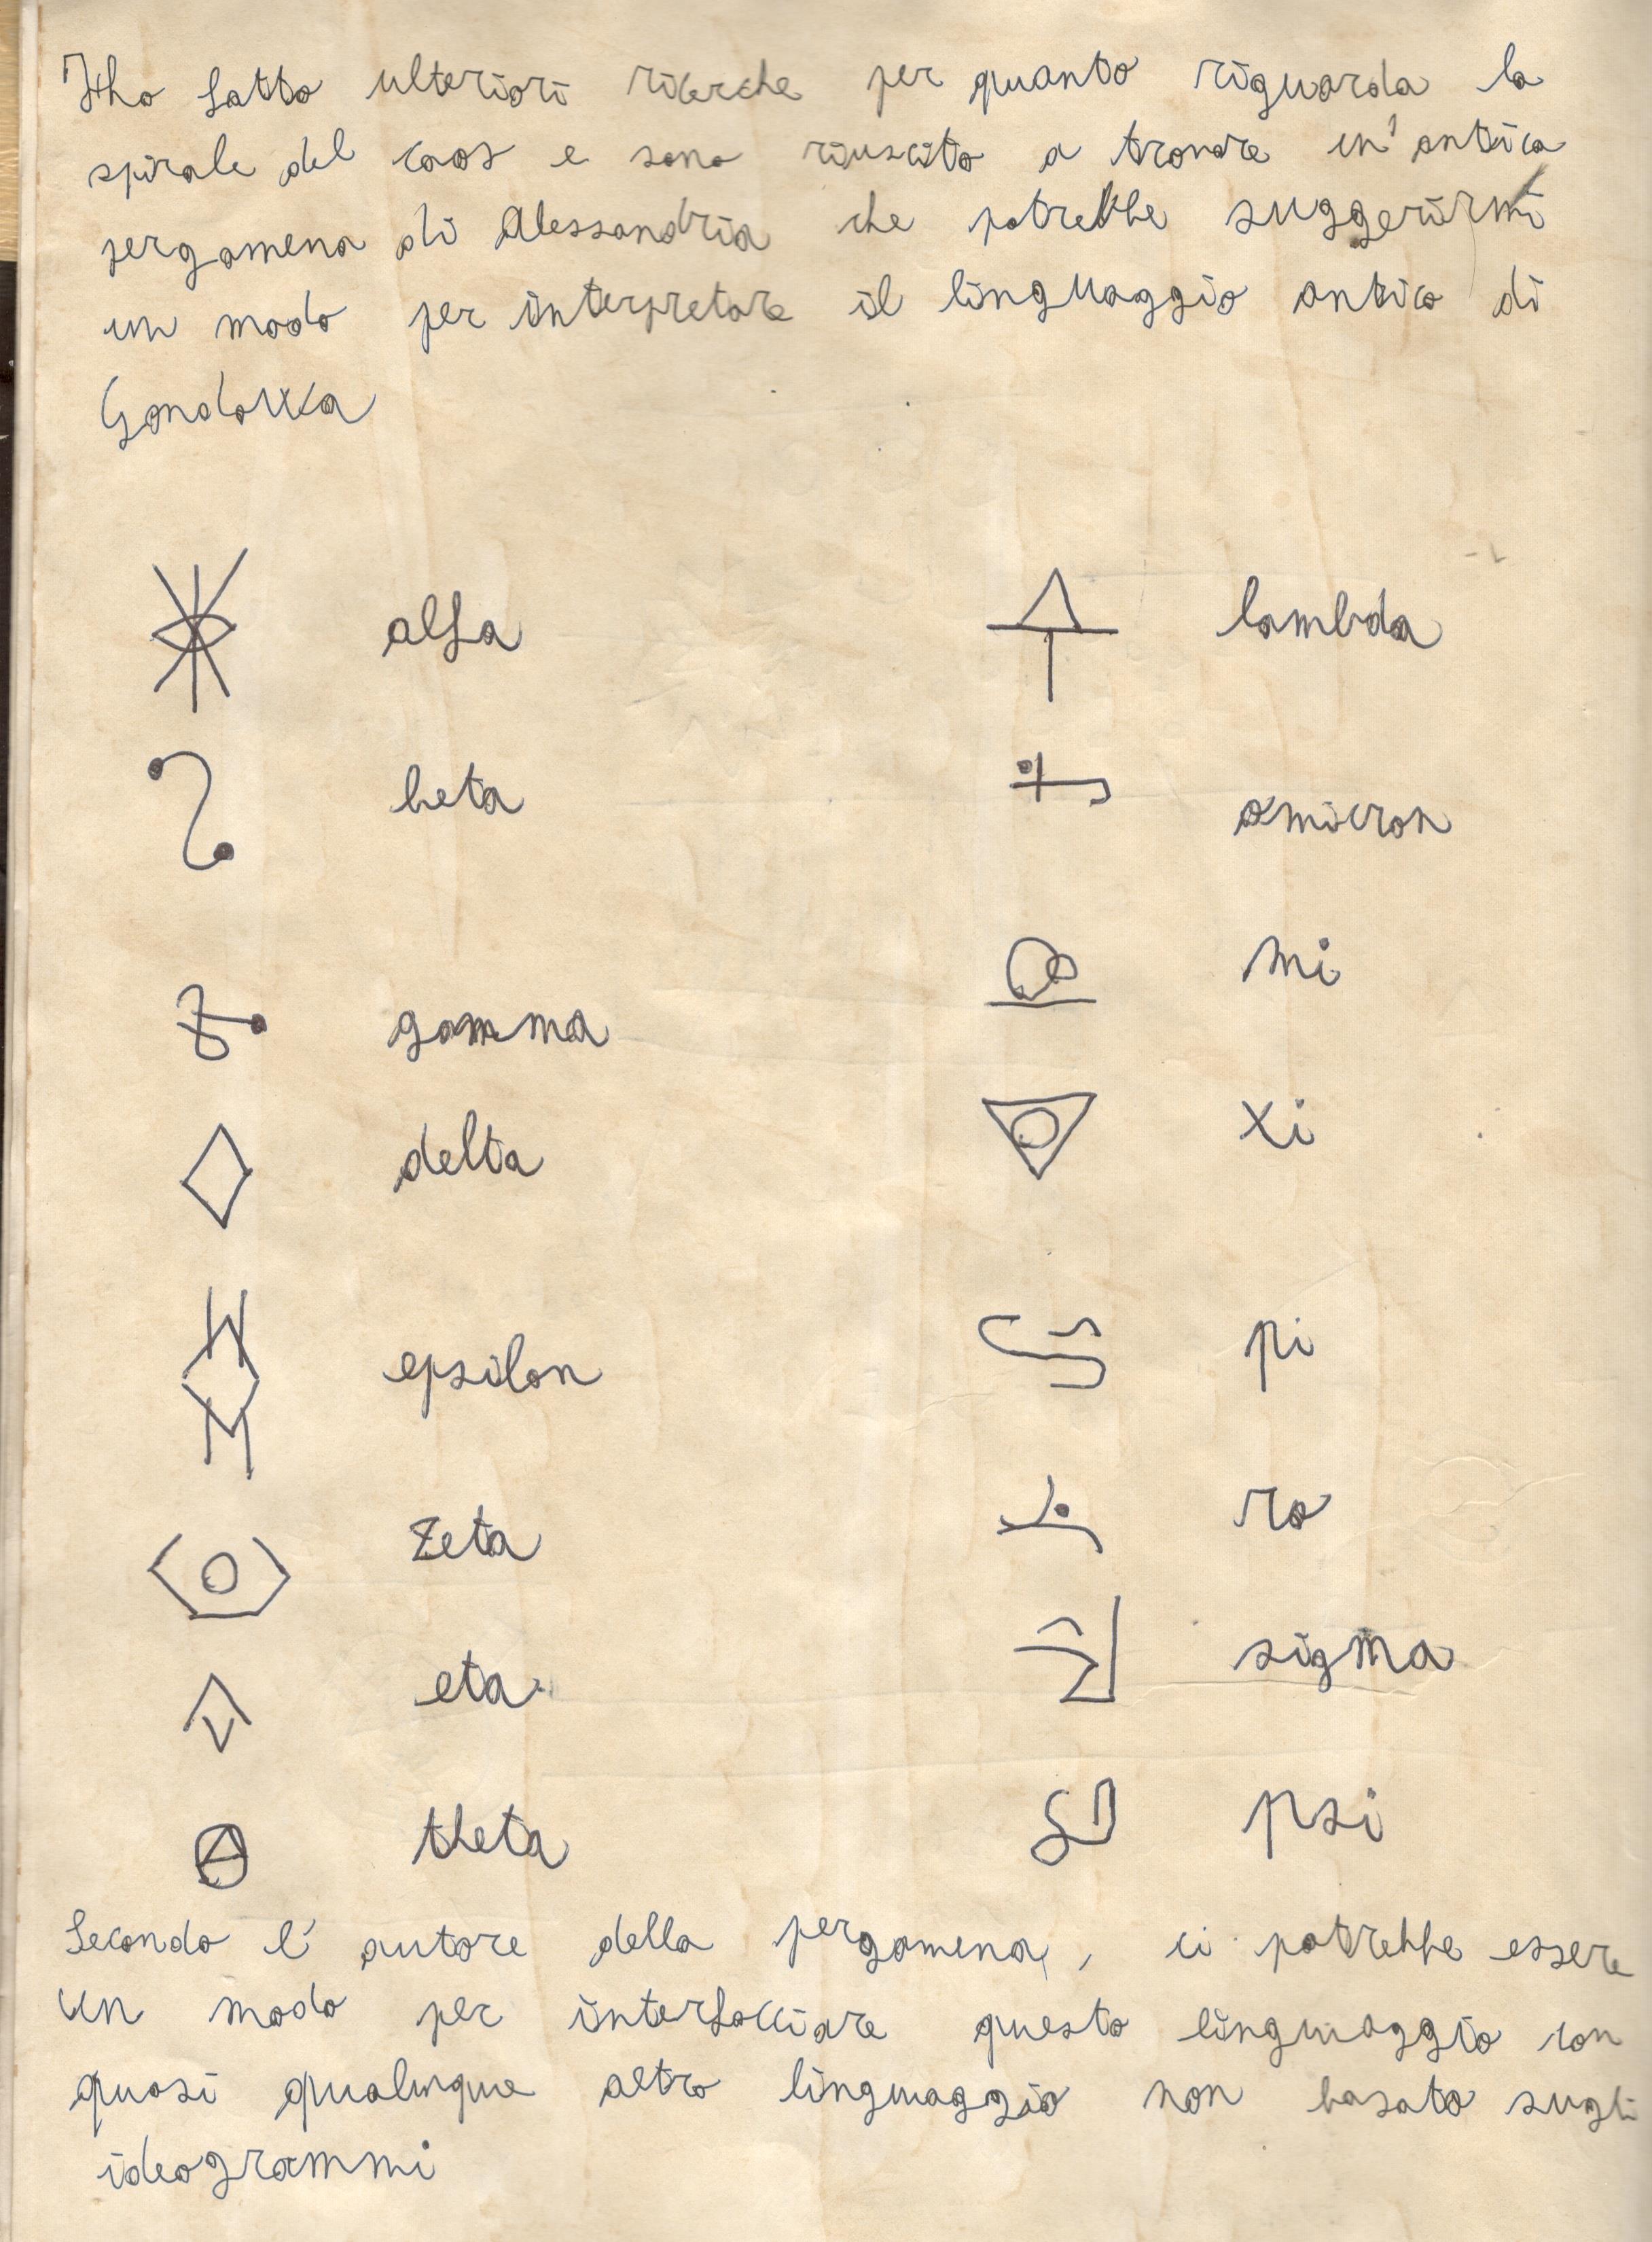 Ho fatto ulteriori ricerche per quanto riguarda la
spirale del caos e sono riuscito a trovare un'antica
pergamena di Alessandria che potrebbe suggerirmi
un modo per interpretare il linguaggio antico di
alfa
beta
gamma
delta
epsilon
zeta
eta
theta
lambda
omicron
mi
xi
pi
ro
sigma
psi
Secondo l'autore della pergamena, ci potrebbe essere
un modo per interfacciare questo linguaggio con
quasi qualunque altro linguaggio non basato sugli
ideogrammi